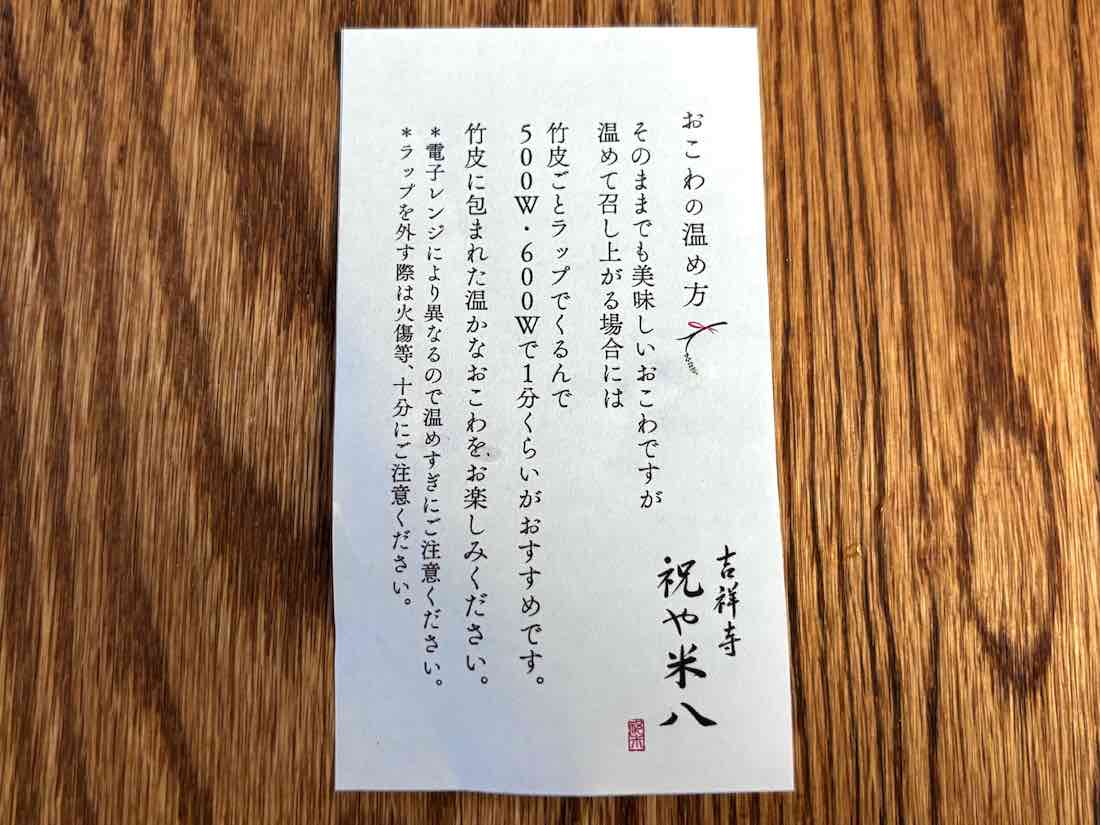 おこわの温め方
そのままでも美味しいおこわですが
温めて召し上がる場合には
竹皮ごとラップでくるんで
500W・600Wで1分くらいがおすすめです。
竹皮に包まれた温かなおこわを、お楽しみください。
*電子レンジにより異なるので温めすぎにご注意ください。
*ラップを外す際は火傷等、十分にご注意ください。
吉祥寺
祝や米八